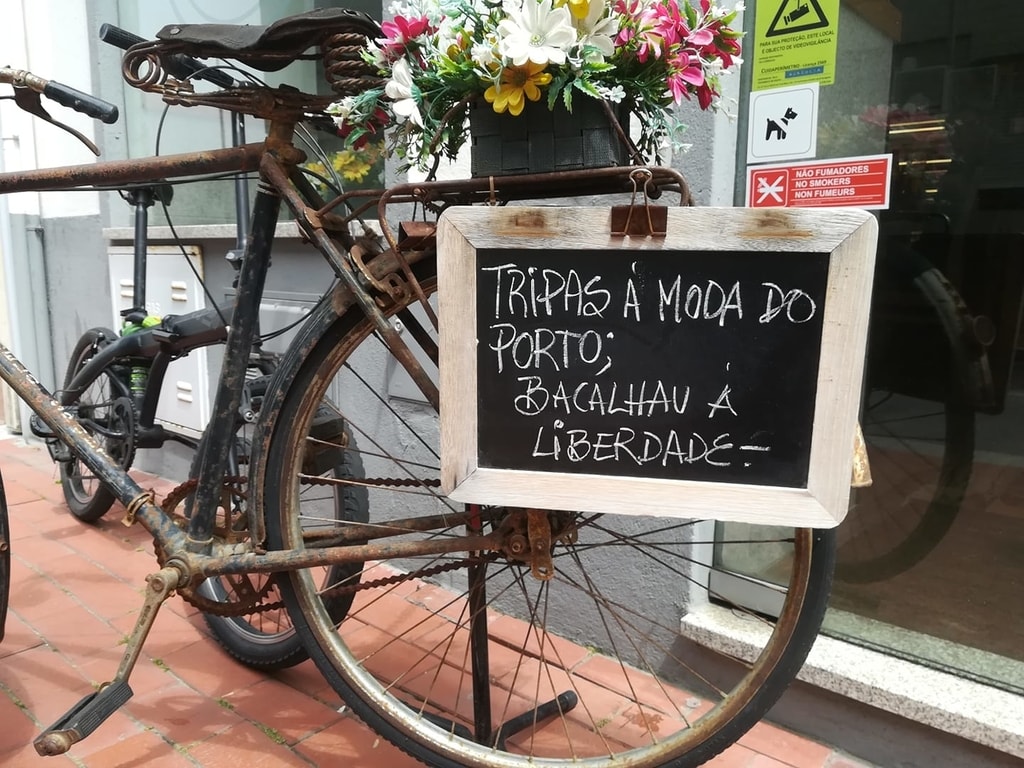 PARA SUA PROTEÇÃO, ESTE LOCAL
É OBJECTO DE VIDEOVIGILÂNCIA
NÃO FUMADORES
NO SMOKERS
NON FUMEURS
TRIPAS À MODA DO
PORTO;
BACALHAU À
LIBERDADE-=